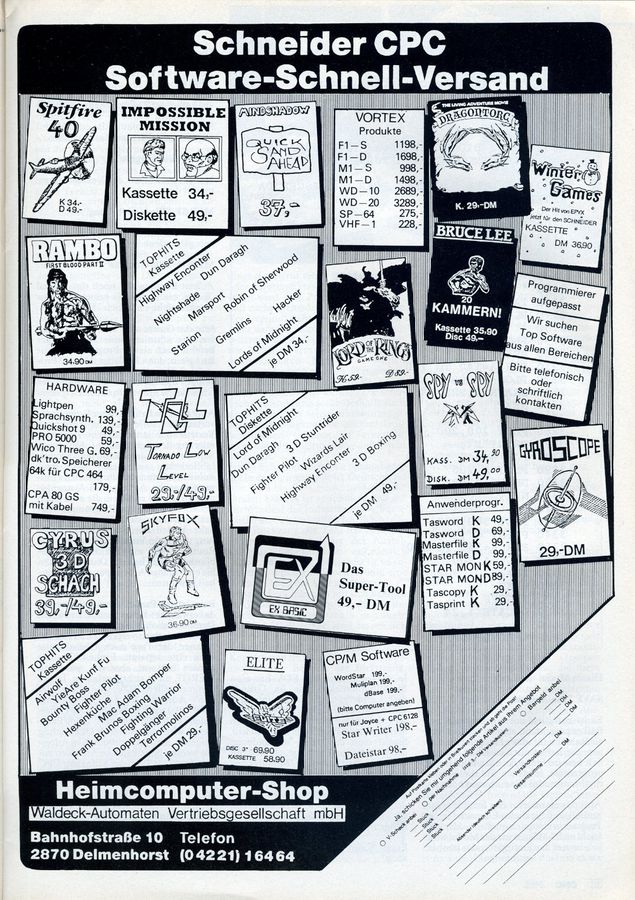 Schneider CPC
Software-Schnell-Versand
Spitfire
40
K 34.-
D 49.-
IMPOSSIBLE
MISSION
Kassette 34,-
Diskette 49,-
MINDSHADOW
QUICK
SAND
AHEAD
37,-
VORTEX
Produkte
F1–S 1198,-
F1–D 1698,-
M1–S 998,-
M1–D 1498,-
WD–10 2689,-
WD–20 3289,-
SP–64 275,-
VHF–1 228,-
THE LIVING ADVENTURE MOVIE
DRAGONTORC
K. 29,-DM
Winter
Games
Der Hit von EPYX
jetzt für den SCHNEIDER
KASSETTE
DM 36,90
RAMBO
FIRST BLOOD PART II
34.90 DM
TOPHITS
Kassette
Highway Enconter
Dun Daragh
Nightshade
Marsport
Robin of Sherwood
Starion
Gremlins
Hacker
Lords of Midnight
je DM 34,-
LORD OF THE RINGS
GAME ONE
K 59.-
D 89.-
BRUCE LEE
20
KAMMERN!
Kassette 35,90
Disc 49,-
Programmierer
aufgepasst
Wir suchen
Top Software
aus allen Bereichen
Bitte telefonisch
oder
schriftlich
kontakten
HARDWARE
Lightpen 99,-
Sprachsynth. 139,-
Quickshot 9 49,-
PRO 5000 59,-
Wico Three G. 69,-
dk'tro. Speicherer
64k für CPC 464
179,-
CPA 80 GS
mit Kabel 749,-
TLL
TORNADO LOW
LEVEL
29.-/49.-
TOPHITS
Diskette
Lord of Midnight
Dun Daragh
3 D Stuntrider
Fighter Pilot
Wizards Lair
Highway Enconter
3 D Boxing
je DM 49,-
SPY VS SPY
KASS. DM 34,90
DISK. DM 49,00
GYROSCOPE
29,-DM
CYRUS
3 D
SCHACH
39,-/49,-
SKYFOX
36.90 DM
EX
EX BASIC
Das
Super-Tool
49,- DM
Anwenderprogr.
Tasword K 49,-
Tasword D 69,-
Masterfile K 99,-
Masterfile D 99,-
STAR MON K 59,-
STAR MON D 89,-
Tascopy K 29,-
Tasprint K 29,-
TOPHITS
Kassette
Airwolf
YieAre Kunf Fu
Bounty Boss
Fighter Pilot
Hexenküche
Mac Adam Bomper
Frank Brunos Boxing
Fighting Warrior
Doppelgänger
Terrormolinos
je DM 29,-
ELITE
DISC 3" 69.90
KASSETTE 58.90
CP/M Software
WordStar 199,-
Muliplan 199,-
dBase 199,-
(bitte Computer angeben)
nur für Joyce + CPC 6128
Star Writer 198,-
Dateistar 98,-
Ja, schicken Sie mir umgehend folgende Artikel aus Ihrem Angebot
V-Scheck anbei
per Nachnahme
Bargeld anbei
Stück DM
Stück DM
Stück DM
Stück DM
Versandkosten DM
Gesamtsumme DM
Heimcomputer-Shop
Waldeck-Automaten Vertriebsgesellschaft mbH
Bahnhofstraße 10 Telefon
2870 Delmenhorst (0 42 21) 1 64 64